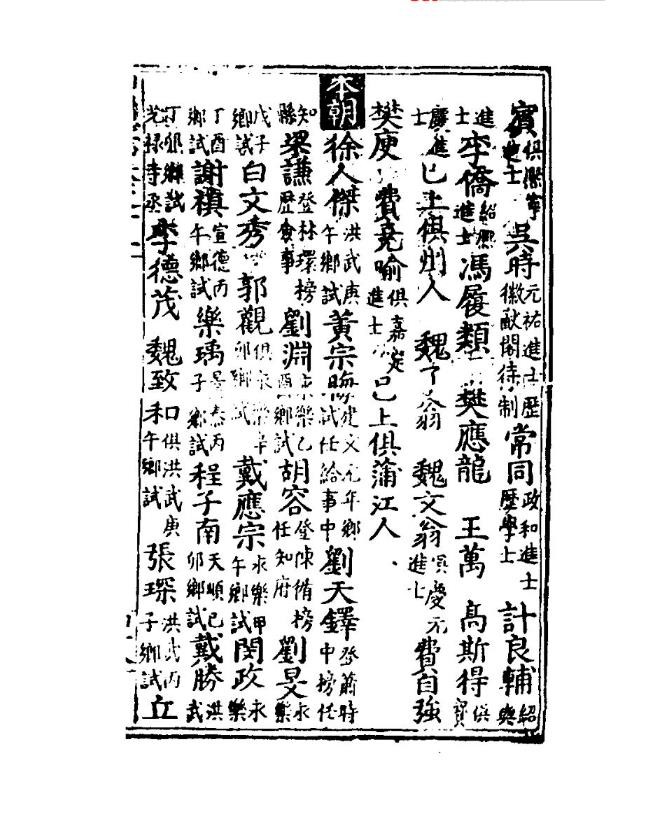 賓俱崇寧進士 吳時元祐進士歷徽猷閣待制 常同政和進士歷學士 計良輔紹興
進士 李僑紹興進士 馮履類 樊應龍 王萬 高斯得俱寶
慶進士 已上俱州人 魏了翁 魏文翁俱慶元進士 費自強
樊庚 費克喻俱嘉定進士 已上俱蒲江人
本朝 徐人傑洪武庚午鄉試 黃宗晦建文元年鄉試任給事中 劉天鐸登蕭時中榜任
知縣 梁謙登林環榜歷僉事 劉淵永樂乙酉鄉試 胡容登陳循榜任知府 劉旻永樂
戊子鄉試 白文秀 郭觀俱永樂辛卯鄉試 戴應宗永樂甲午鄉試 閔政永樂
丁酉鄉試 謝禛宣德丙午鄉試 樂瑀景泰丙子鄉試 程子南天順己卯鄉試 戴勝洪武
丁卯鄉試光祿寺丞 李德茂 魏致和俱洪武庚午鄉試 張琛洪武丙子鄉試 立